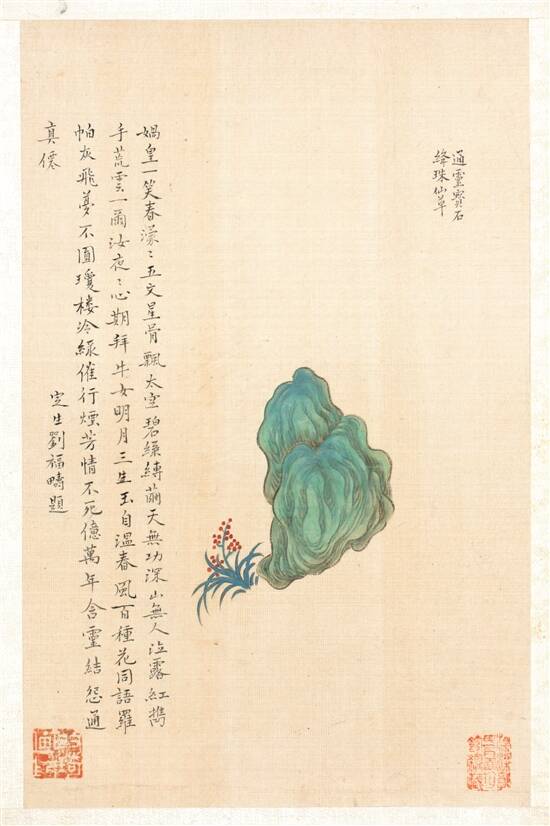 通靈寶石
絳珠仙草
媧皇一笑春濛〻五文星骨飄太空碧絲縳繭天無功深山無人泣露紅携
手荒雲一爾汝夜〻心期拜牛女明月三生玉自溫春風百種花同語羅
帕灰飛夢不圓瓊樓冷綠催行煙芳情不死億萬年含靈結怨通
真僊
定生劉福疇題